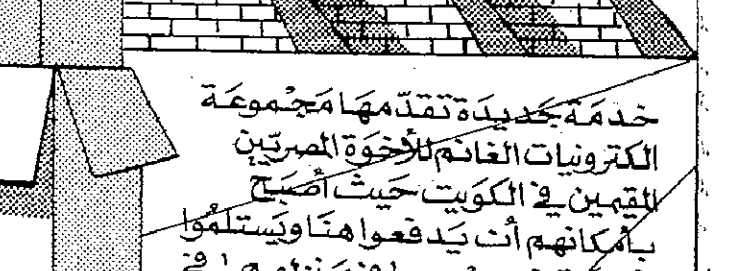 خدمَة جَديدَة تقدّمهَا مَجْموعَة
الكترونيات الغانم للأخوَة المصريّين
المقيمين في الكوَيت حَيث أصْبَح
بأمكانهم أن يَدفعوا هنَا ويَستلمُوا
في